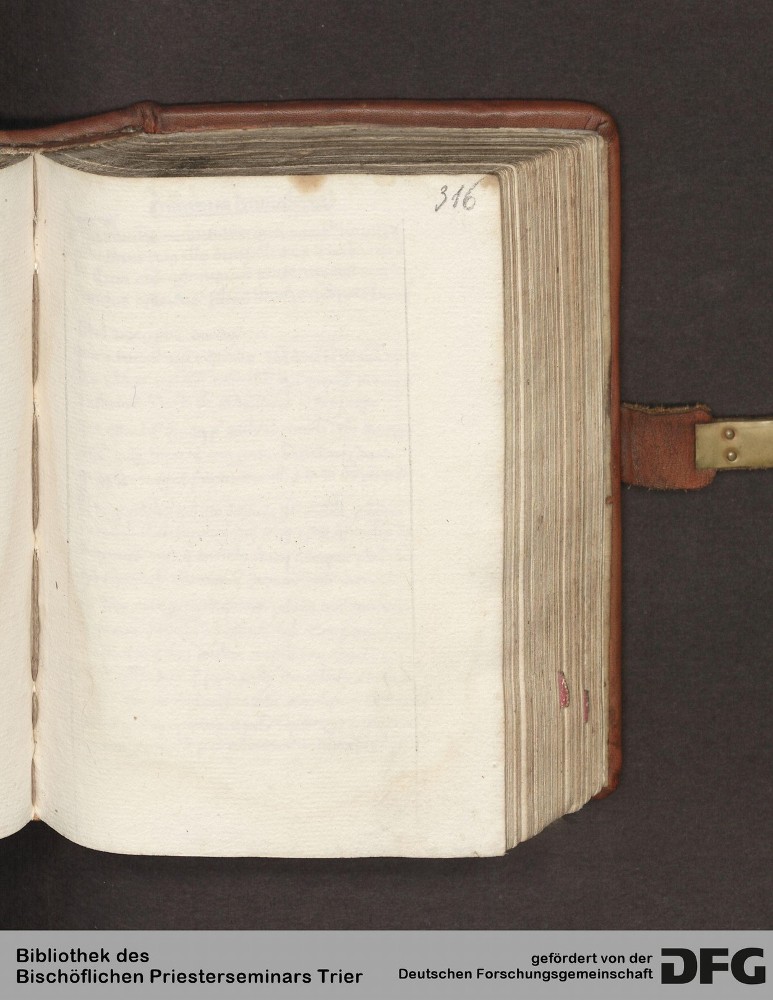 316
Bibliothek des
Bischöflichen Priesterseminars Trier
gefördert von der
Deutschen Forschungsgemeinschaft
DFG